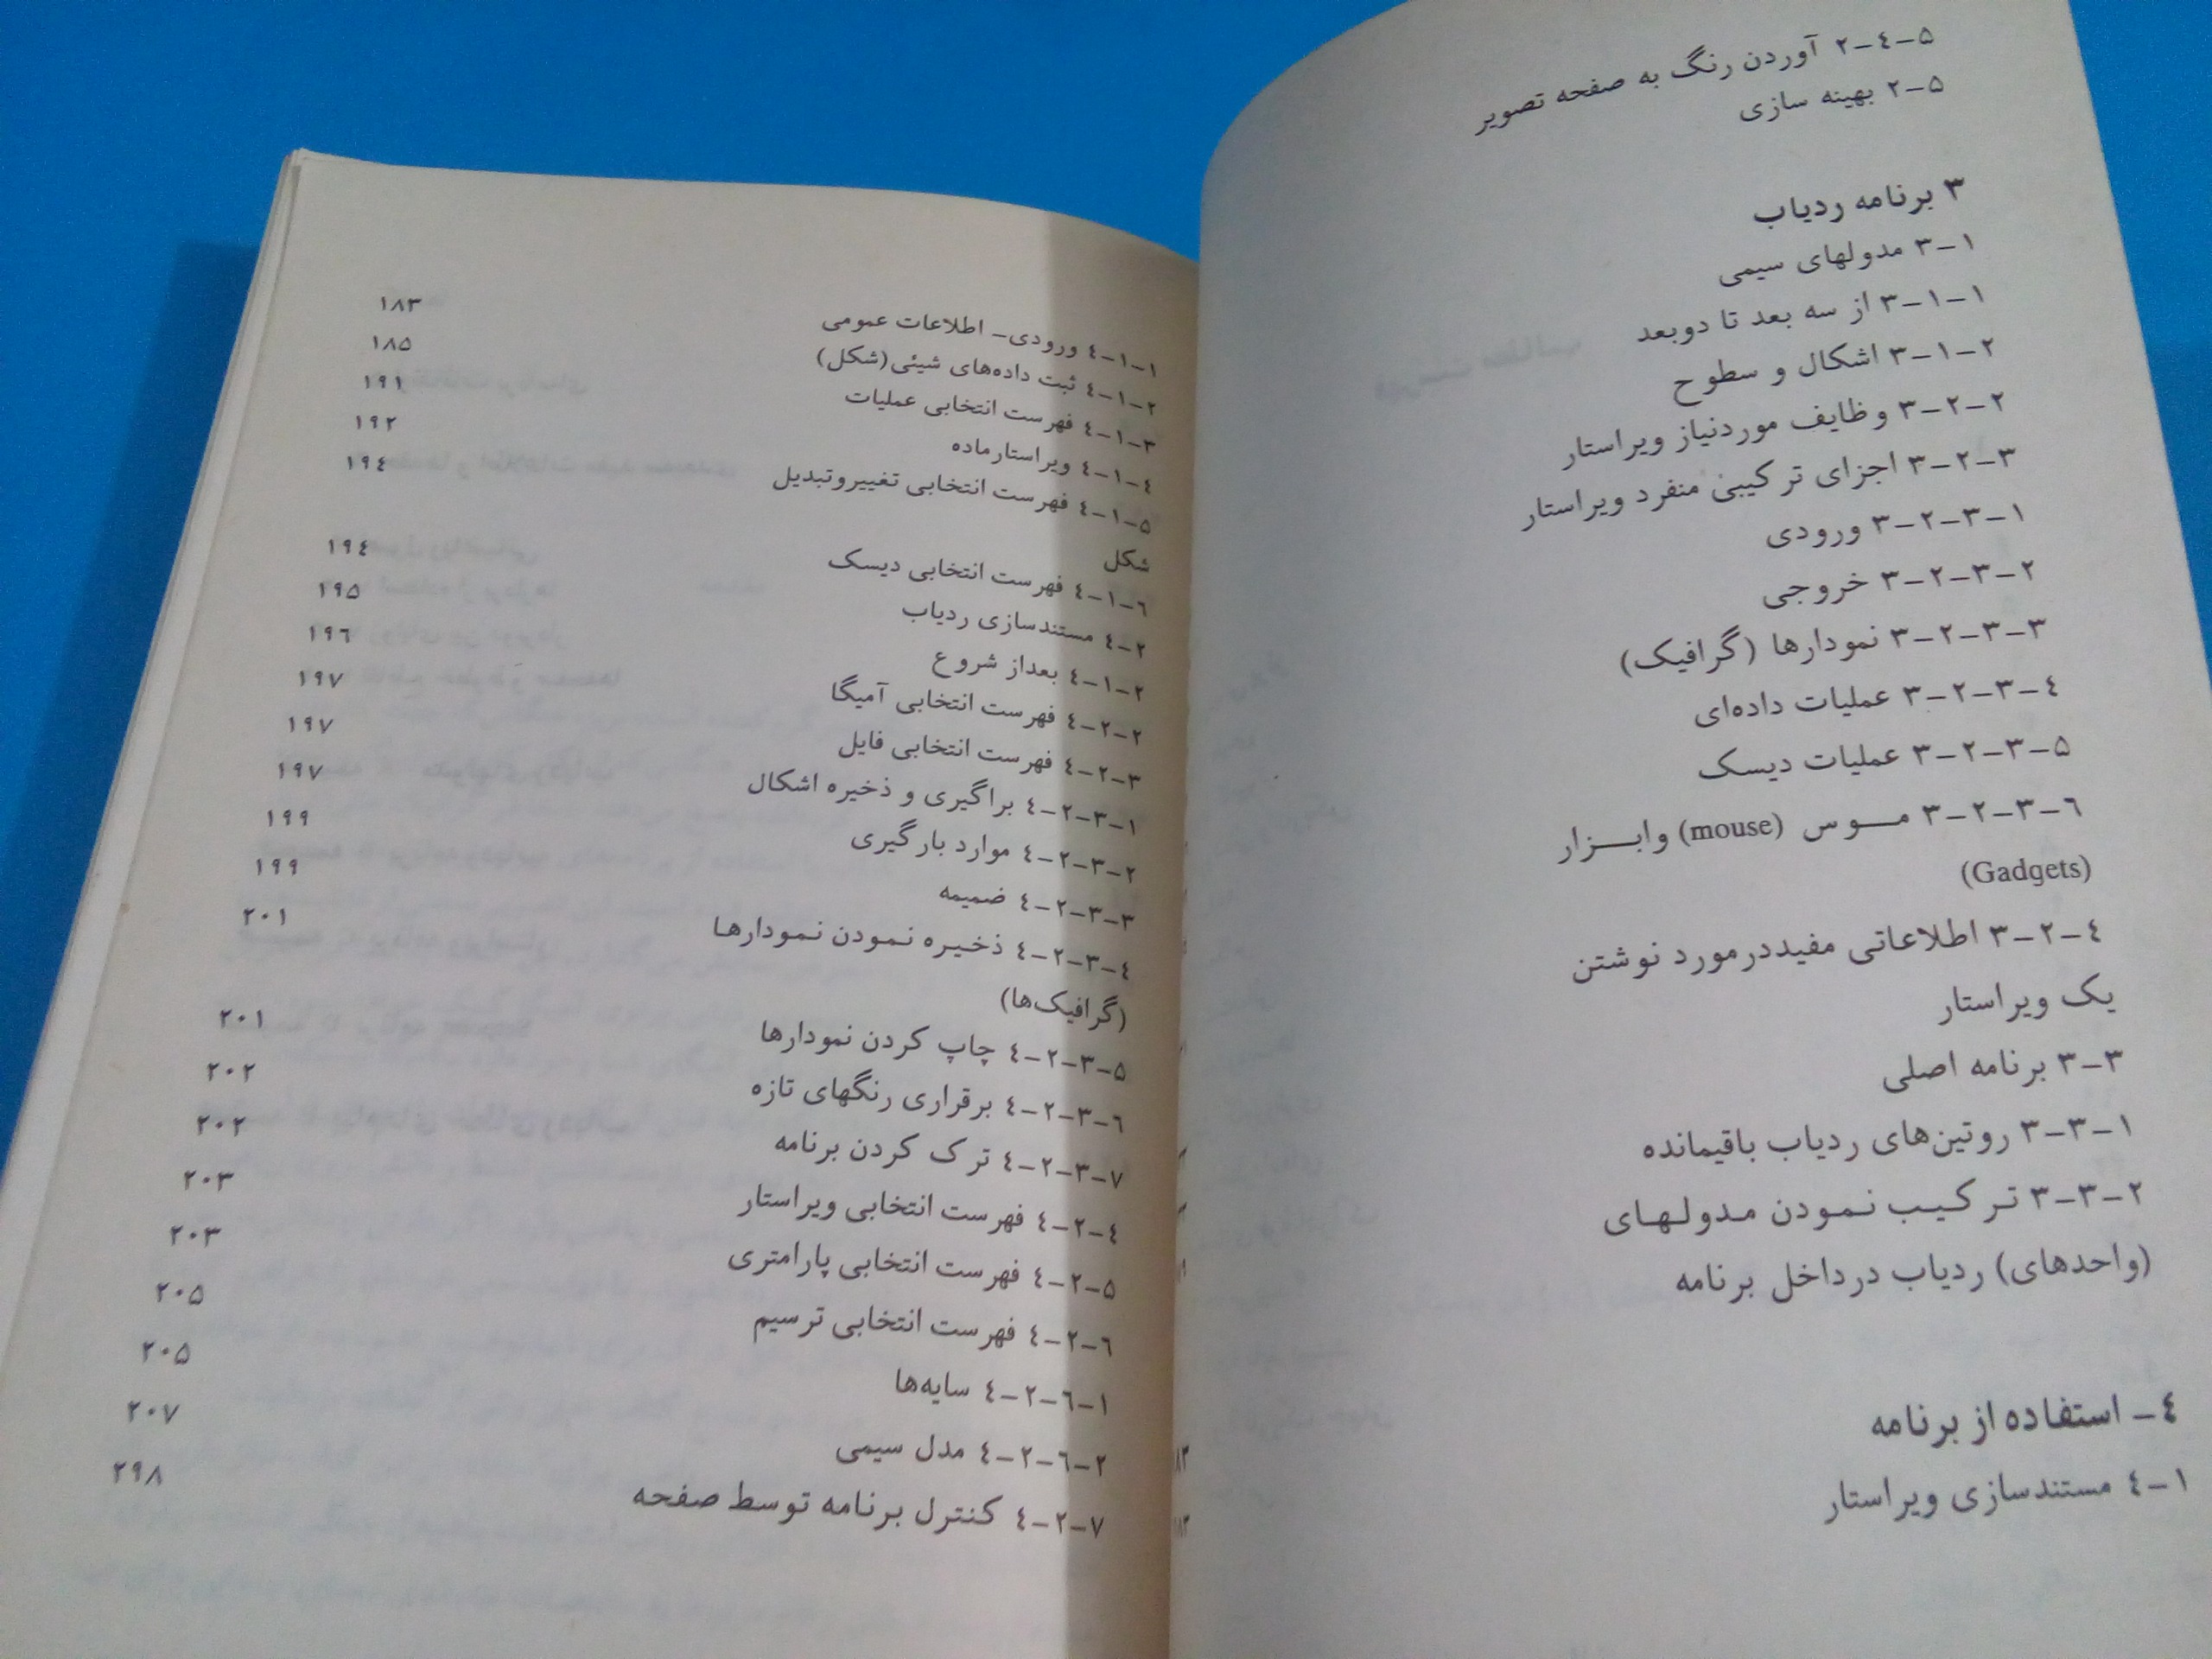 ۲-٤-۵ آوردن رنگ به صفحه تصویر
۲-۵ بهینه سازی
۳ برنامه ردیاب
۳-۱ مدولهای سیمی
۳-۱-۱ از سه بعد تا دوبعد
۳-۱-۲ اشکال و سطوح
۳-۲-۲ وظایف موردنیاز ویراستار
۳-۲-۳ اجزای ترکیبی منفرد ویراستار
۳-۲-۳-۱ ورودی
۳-۲-۳-۲ خروجی
۳-۲-۳-۳ نمودارها (گرافیک)
۳-۲-۳-٤ عملیات داده‌ای
۳-۲-۳-۵ عملیات دیسک
۳-۲-۳-٦ مـــوس (mouse) وابــزار
(Gadgets)
۳-۲-٤ اطلاعاتی مفیددرمورد نوشتن
یک ویراستار
۳-۳ برنامه اصلی
۳-۳-۱ روتین‌های ردیاب باقیمانده
۳-۳-۲ ترکیب نمودن مدولهای
(واحدهای) ردیاب درداخل برنامه
٤- استفاده از برنامه
٤-۱ مستندسازی ویراستار
٤-۱-۱ ورودی- اطلاعات عمومی ۱۸۳
٤-۱-۲ ثبت داده‌های شیئی(شکل) ۱۸۵
٤-۱-۳ فهرست انتخابی عملیات ۱۹۱
٤-۱-٤ ویراستارماده ۱۹۲
٤-۱-۵ فهرست انتخابی تغییروتبدیل ۱۹٤
شکل
٤-۱-٦ فهرست انتخابی دیسک ۱۹٤
٤-۲ مستندسازی ردیاب ۱۹۵
٤-۱-۲ بعداز شروع ۱۹٦
٤-۲-۲ فهرست انتخابی آمیگا ۱۹۷
٤-۲-۳ فهرست انتخابی فایل ۱۹۷
٤-۲-۳-۱ براگیری و ذخیره اشکال ۱۹۷
٤-۲-۳-۲ موارد بارگیری ۱۹۹
٤-۲-۳-۳ ضمیمه ۱۹۹
٤-۲-۳-٤ ذخیره نمودن نمودارها ۲۰۱
(گرافیک‌ها)
٤-۲-۳-۵ چاپ کردن نمودارها ۲۰۱
٤-۲-۳-٦ برقراری رنگهای تازه ۲۰۲
٤-۲-۳-۷ ترک کردن برنامه ۲۰۲
٤-۲-٤ فهرست انتخابی ویراستار ۲۰۳
٤-۲-۵ فهرست انتخابی پارامتری ۲۰۳
٤-۲-٦ فهرست انتخابی ترسیم ۲۰۵
٤-۲-٦-۱ سایه‌ها ۲۰۵
٤-۲-٦-۲ مدل سیمی ۲۰۷
٤-۲-۷ کنترل برنامه توسط صفحه ۲۹۸